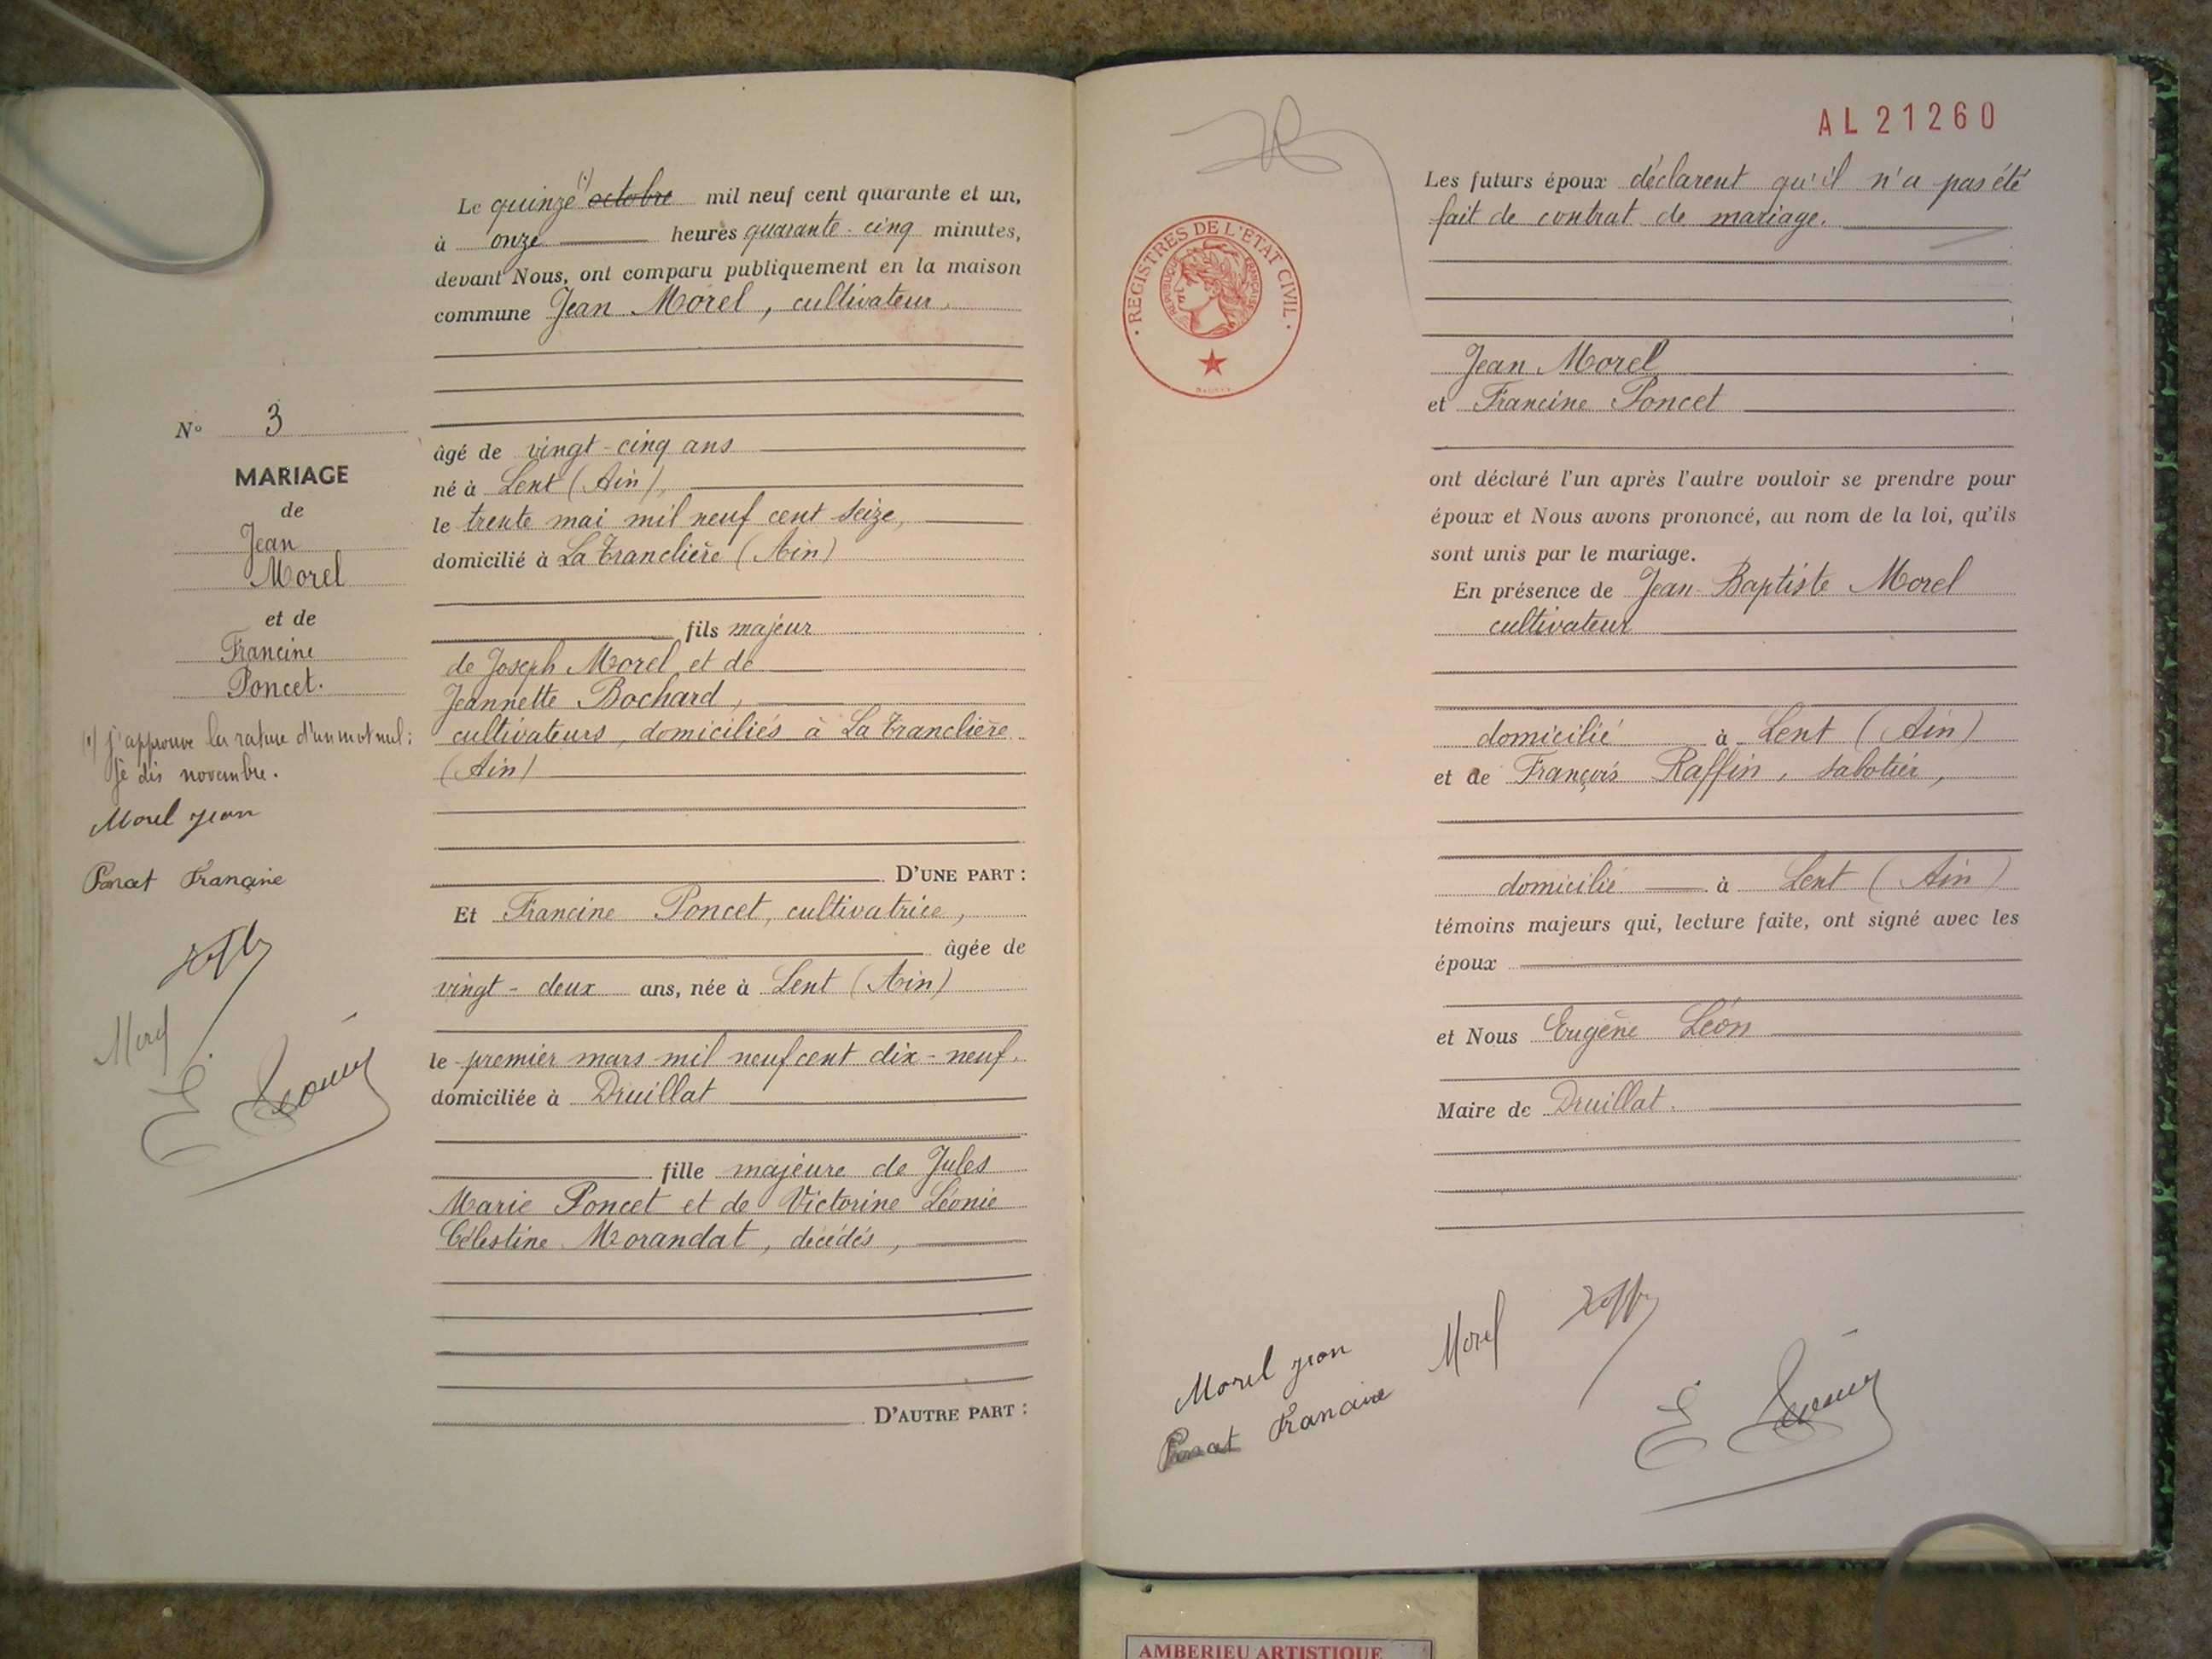 Le quinze (1) octobre mil neuf cent quarante et un,
à onze heures quarante-cinq minutes,
devant Nous, ont comparu publiquement en la maison
commune Jean Morel, cultivateur,
âgé de vingt-cinq ans
né à Lent (Ain),
le trente mai mil neuf cent seize,
domicilié à La Tranclière (Ain)
fils majeur
de Joseph Morel et de
Jeannette Bochard,
cultivateurs, domiciliés à La Tranclière
(Ain)
D'UNE PART :
Et Francine Poncet, cultivatrice,
âgée de
vingt-deux ans, née à Lent (Ain)
le premier mars mil neuf cent dix-neuf.
domiciliée à Druillat
fille majeure de Jules
Marie Poncet et de Victorine Léonie
Célestine Morandat, décédés,
D'AUTRE PART :
N° 3
MARIAGE
de
Jean
Morel
et de
Francine
Poncet.
(1) j'approuve la rature d'un mot nul :
je dis novembre.
Morel Jean
Poncet Francine
Morel
AL 21260
REGISTRES DE L'ETAT CIVIL
REPUBLIQUE FRANÇAISE
Les futurs époux déclarent qu'il n'a pas été
fait de contrat de mariage.
Jean Morel
et Francine Poncet
ont déclaré l'un après l'autre vouloir se prendre pour
époux et Nous avons prononcé, au nom de la loi, qu'ils
sont unis par le mariage.
En présence de Jean-Baptiste Morel
cultivateur
domicilié à Lent (Ain)
et de François Raffin, sabotier,
domicilié à Lent (Ain)
témoins majeurs qui, lecture faite, ont signé avec les
époux
et Nous Eugène Léon
Maire de Druillat.
Morel Jean
Morel
Poncet Francine
AMBERIEU ARTISTIQUE